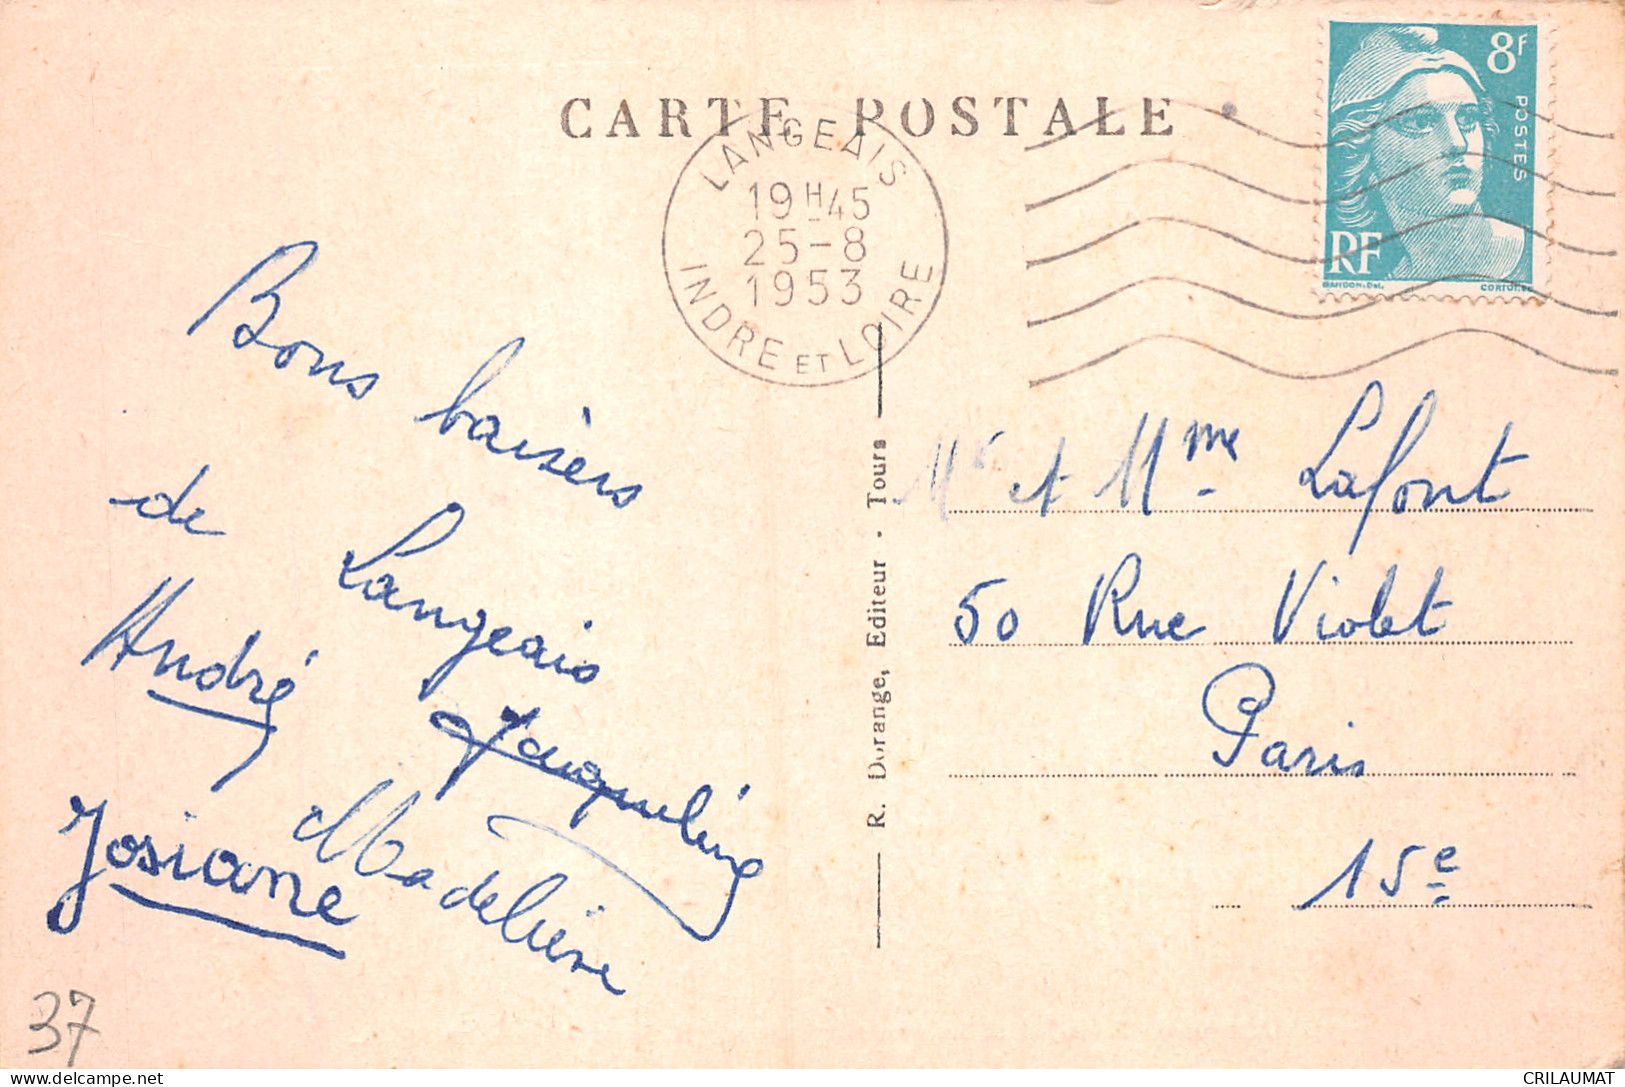 CARTE POSTALE
LANGEAIS
19H45
25-8
1953
INDRE ET LOIRE
8F
POSTES
RF
GANDON.Del.
CORTOT.Sc
Bons baisers
de Langeais
André Jacqueline
Josiane Madeleine
37
R. Dorange, Editeur - Tours
Mr et Mme Lafont
50 Rue Violet
Paris
15e
CRILAUMAT